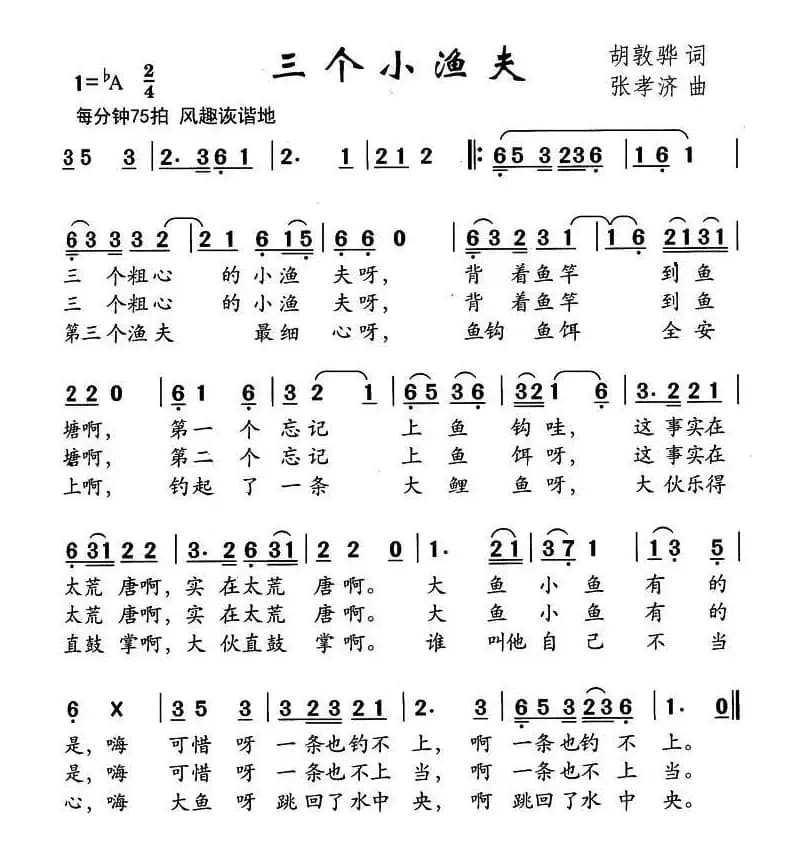 三个小渔夫
1=♭A 2/4
胡敦骅 词
张孝济 曲
每分钟75拍 风趣诙谐地
3 5 3 | 2. 3 6 1 | 2. 1 | 2 1 2 |: 6 5 3 2 3 6 | 1 6 1 |
6 3 3 3 3 2 | 2 1 6 1 5 | 6 6 0 | 6 3 2 3 1 | 1 6 2 1 3 1 |
三 个粗心 的小渔 夫呀, 背着鱼竿 到鱼
三 个粗心 的小渔 夫呀, 背着鱼竿 到鱼
第三个渔夫 最细 心呀, 鱼钩 鱼饵 全安
2 2 0 | 6 1 6 | 3 2 1 | 6 5 3 6 | 3 2 1 6 | 3. 2 2 2 1 |
塘啊, 第一个忘记 上鱼钩哇, 这事实在
塘啊, 第二个忘记 上鱼饵呀, 这事实在
上啊, 钓起了一条 大鲤鱼呀, 大伙乐得
6 3 1 2 2 | 3. 2 6 3 1 | 2 2 0 | 1. 2 1 | 3 7 1 | 1 3 5 |
太荒唐啊, 实在太荒唐啊。 大鱼小鱼有的
太荒唐啊, 实在太荒唐啊。 大鱼小鱼有的
直鼓掌啊, 大伙直鼓掌啊。 谁叫他自己不当
6 X | 3 5 3 | 3 2 3 2 1 | 2. 3 | 6 5 3 2 3 6 | 1. 0 :||
是, 嗨 可惜呀 一条也钓不上, 啊 一条也钓不上。
是, 嗨 可惜呀 一条也不上当, 啊 一条也不上当。
心, 嗨 大鱼呀 跳回了水中央, 啊 跳回了水中央。